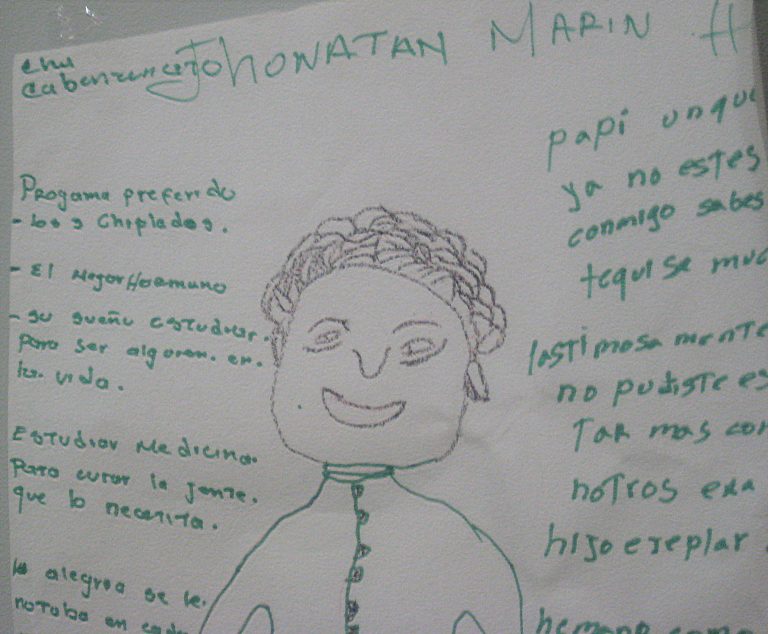 JhONATAN MARIN H
Progama preferido
- los 3 Chiplados.
- El Mejor Hermano
- su sueño estudiar.
para ser alguien. en.
la. vida.
Estudiar Medicina.
Para curar la jente.
que lo necesita.
la alegrea se le.
notaba en cada
papi unque
ya no estes
conmigo sabes
tequise muc
lastimosamente
no pudiste es
Tar mas con
notros exa
hijo exeplar.
hemano como